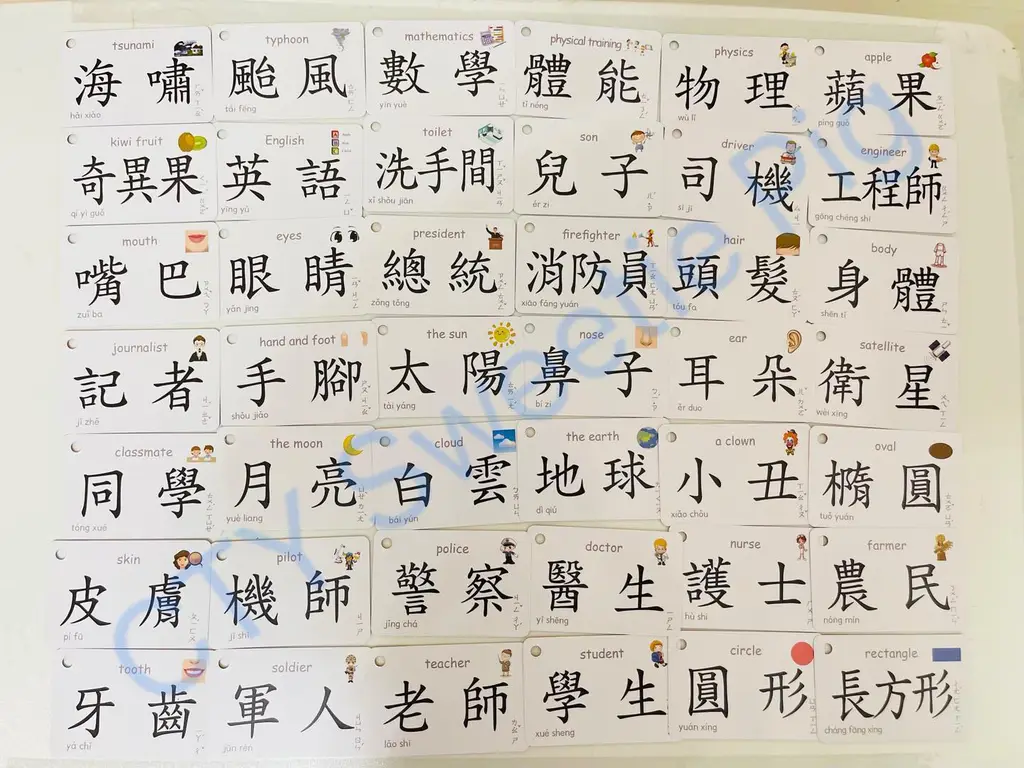 tsunami
海嘯
hǎi xiào
typhoon
颱風
tái fēng
mathematics
數學
yīn yuè
physical training
體能
tǐ néng
physics
物理
wù lǐ
apple
蘋果
píng guǒ
kiwi fruit
奇異果
qí yì guǒ
English
英語
yīng yǔ
toilet
洗手間
xǐ shǒu jiān
son
兒子
ér zi
driver
司機
sī jī
engineer
工程師
gōng chéng shī
mouth
嘴巴
zuǐ ba
eyes
眼睛
yǎn jing
president
總統
zǒng tǒng
firefighter
消防員
xiāo fáng yuán
hair
頭髮
tóu fa
body
身體
shēn tǐ
journalist
記者
jì zhě
hand and foot
手腳
shǒu jiǎo
the sun
太陽
tài yáng
nose
鼻子
bí zi
ear
耳朵
ěr duo
satellite
衛星
wèi xīng
classmate
同學
tóng xué
the moon
月亮
yuè liang
cloud
白雲
bái yún
the earth
地球
dì qiú
a clown
小丑
xiǎo chǒu
oval
橢圓
tuǒ yuán
skin
皮膚
pí fū
pilot
機師
jī shī
police
警察
jǐng chá
doctor
醫生
yī shēng
nurse
護士
hù shi
farmer
農民
nóng mín
tooth
牙齒
yá chǐ
soldier
軍人
jūn rén
teacher
老師
lǎo shī
student
學生
xué sheng
circle
圓形
yuán xíng
rectangle
長方形
cháng fāng xíng